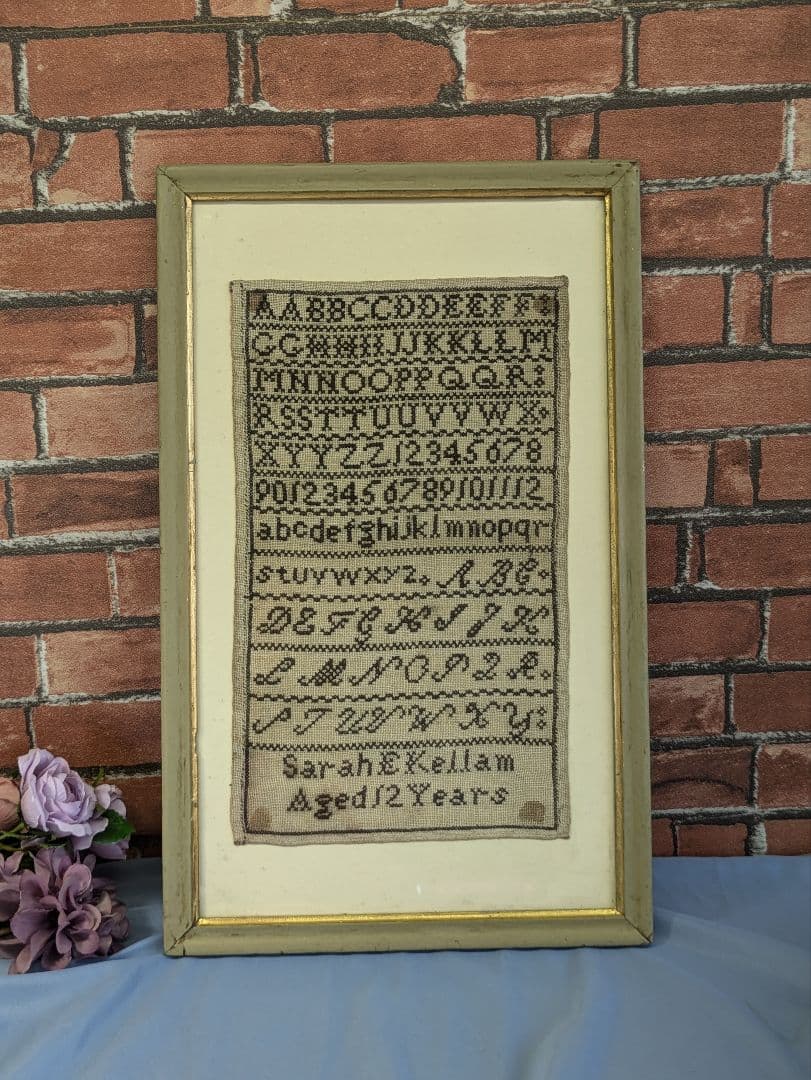 AABBCCDDEEFF:
GGHHIIJJKKLLM
MNNOOPPQQR:
RSSTTUUVVWX:
XYYZZ12345678
90123456789101112
abcdefghijklmnopqr
stuvwxyz. ABC.
DEFGHIJK
LMNOPQR.
STUVWXY:
Sarah E Kellam
Aged 12 Years